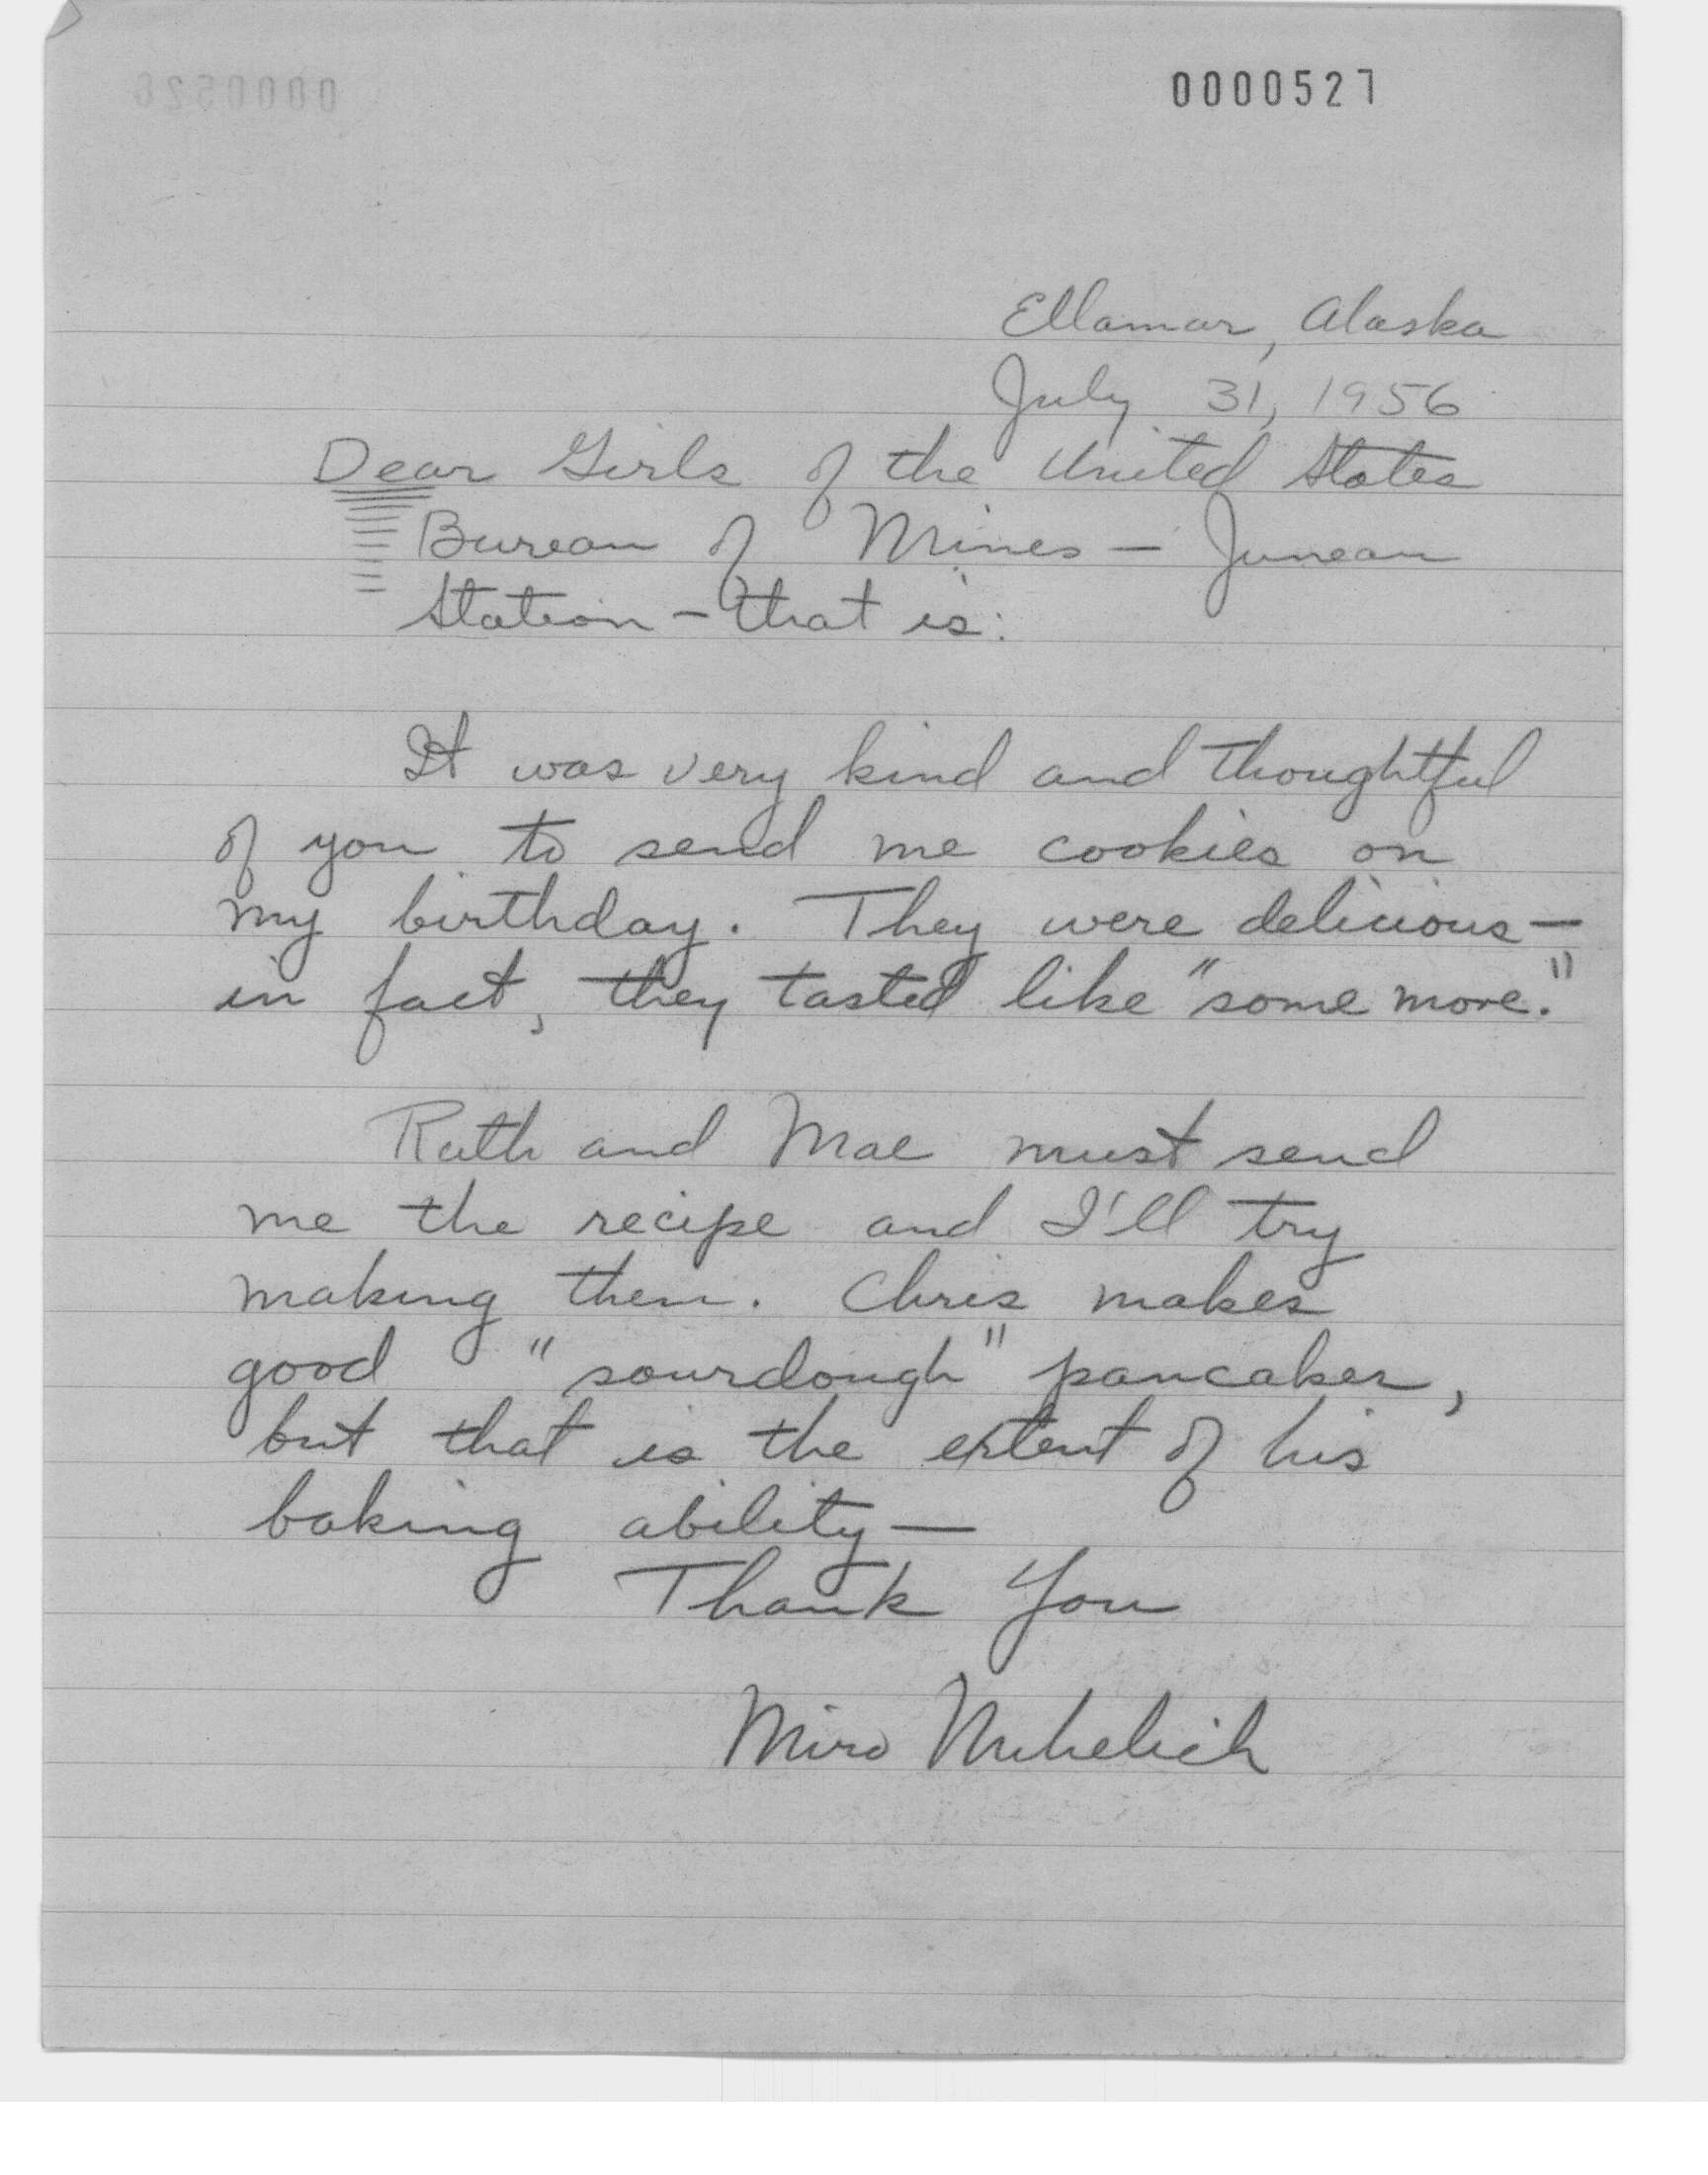 0000527
Ellamar, Alaska
July 31, 1956
Dear Girls of the United States
Bureau of Mines — Juneau
Station — that is:
It was very kind and thoughtful
of you to send me cookies on
my birthday. They were delicious —
in fact, they tasted like "some more."
Ruth and Mae must send
me the recipe and I'll try
making them. Chris makes
good "sourdough" pancakes,
but that is the extent of his
baking ability —
Thank You
Miro Mihelich